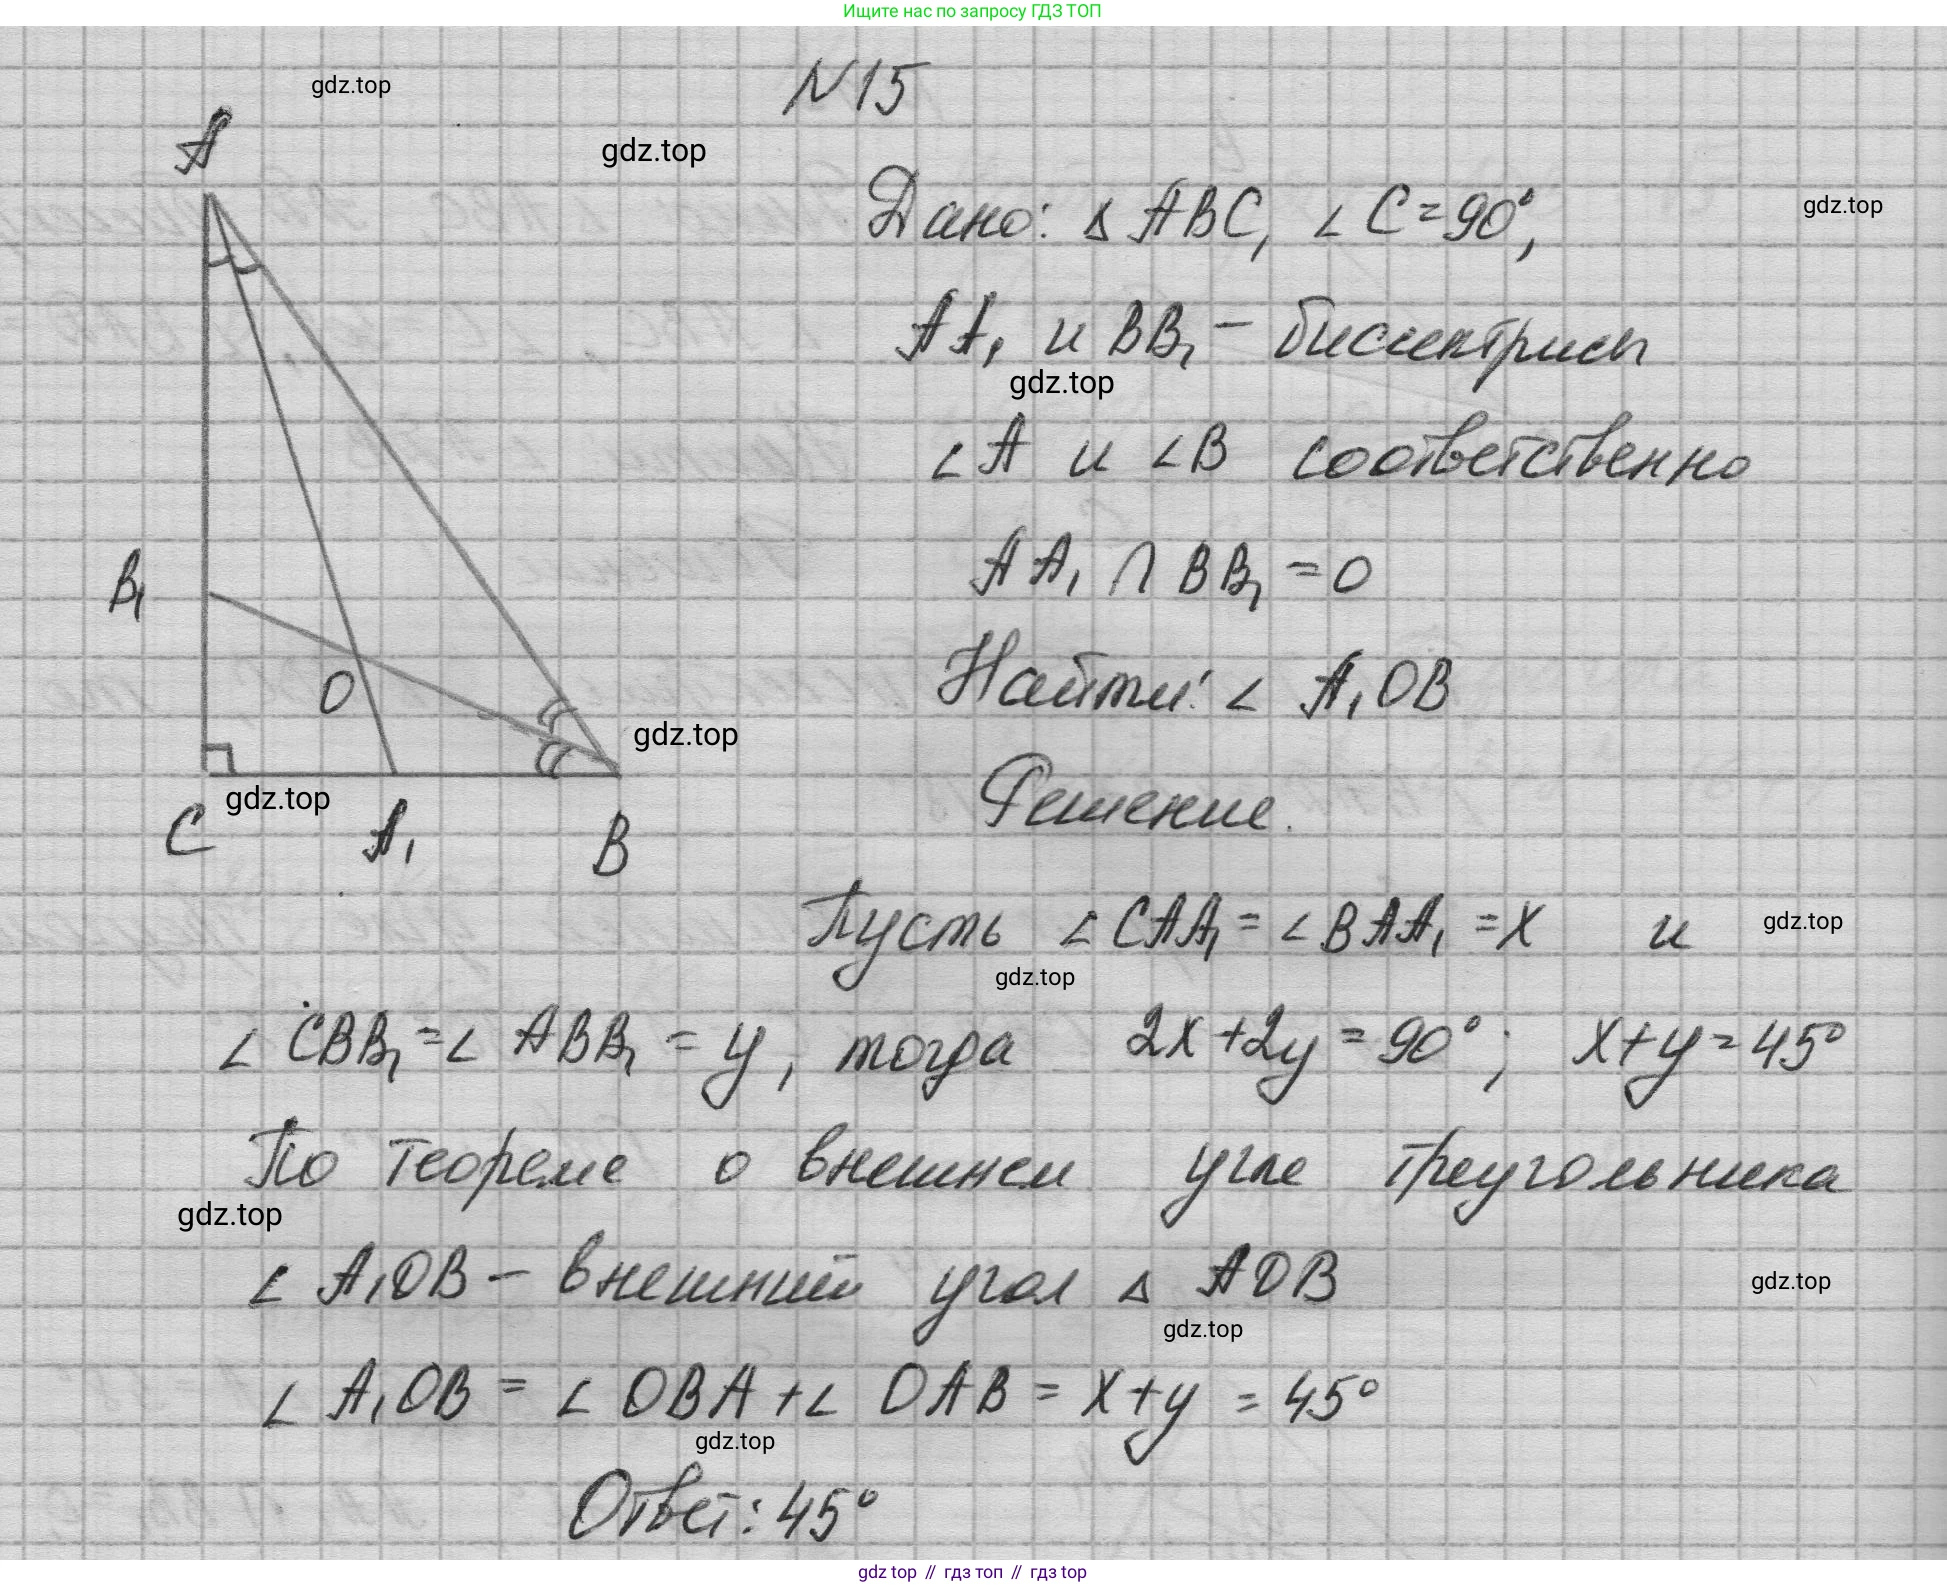 Ищите нас по запросу ГДЗ ТОП
N15
gdz.top
A
gdz.top
Дано: Δ ABC, ∠C=90°,
gdz.top
AA₁ и BB₁ – биссектрисы
gdz.top
∠A и ∠B соответственно
AA₁ ∩ BB₁ = O
B₁
Найти: ∠ A₁OB
O
gdz.top
Решение.
gdz.top
C A₁ B
Пусть ∠CAA₁ = ∠BAA₁ = x и
gdz.top
gdz.top
∠ CBB₁ = ∠ ABB₁ = y, тогда 2x+2y = 90°; x+y = 45°
По теореме о внешнем угле треугольника
gdz.top
∠ A₁OB – внешний угол Δ AOB
gdz.top
gdz.top
∠ A₁OB = ∠ OBA + ∠ OAB = x+y = 45°
gdz.top
Ответ: 45°
gdz top // гдз топ // гдз top